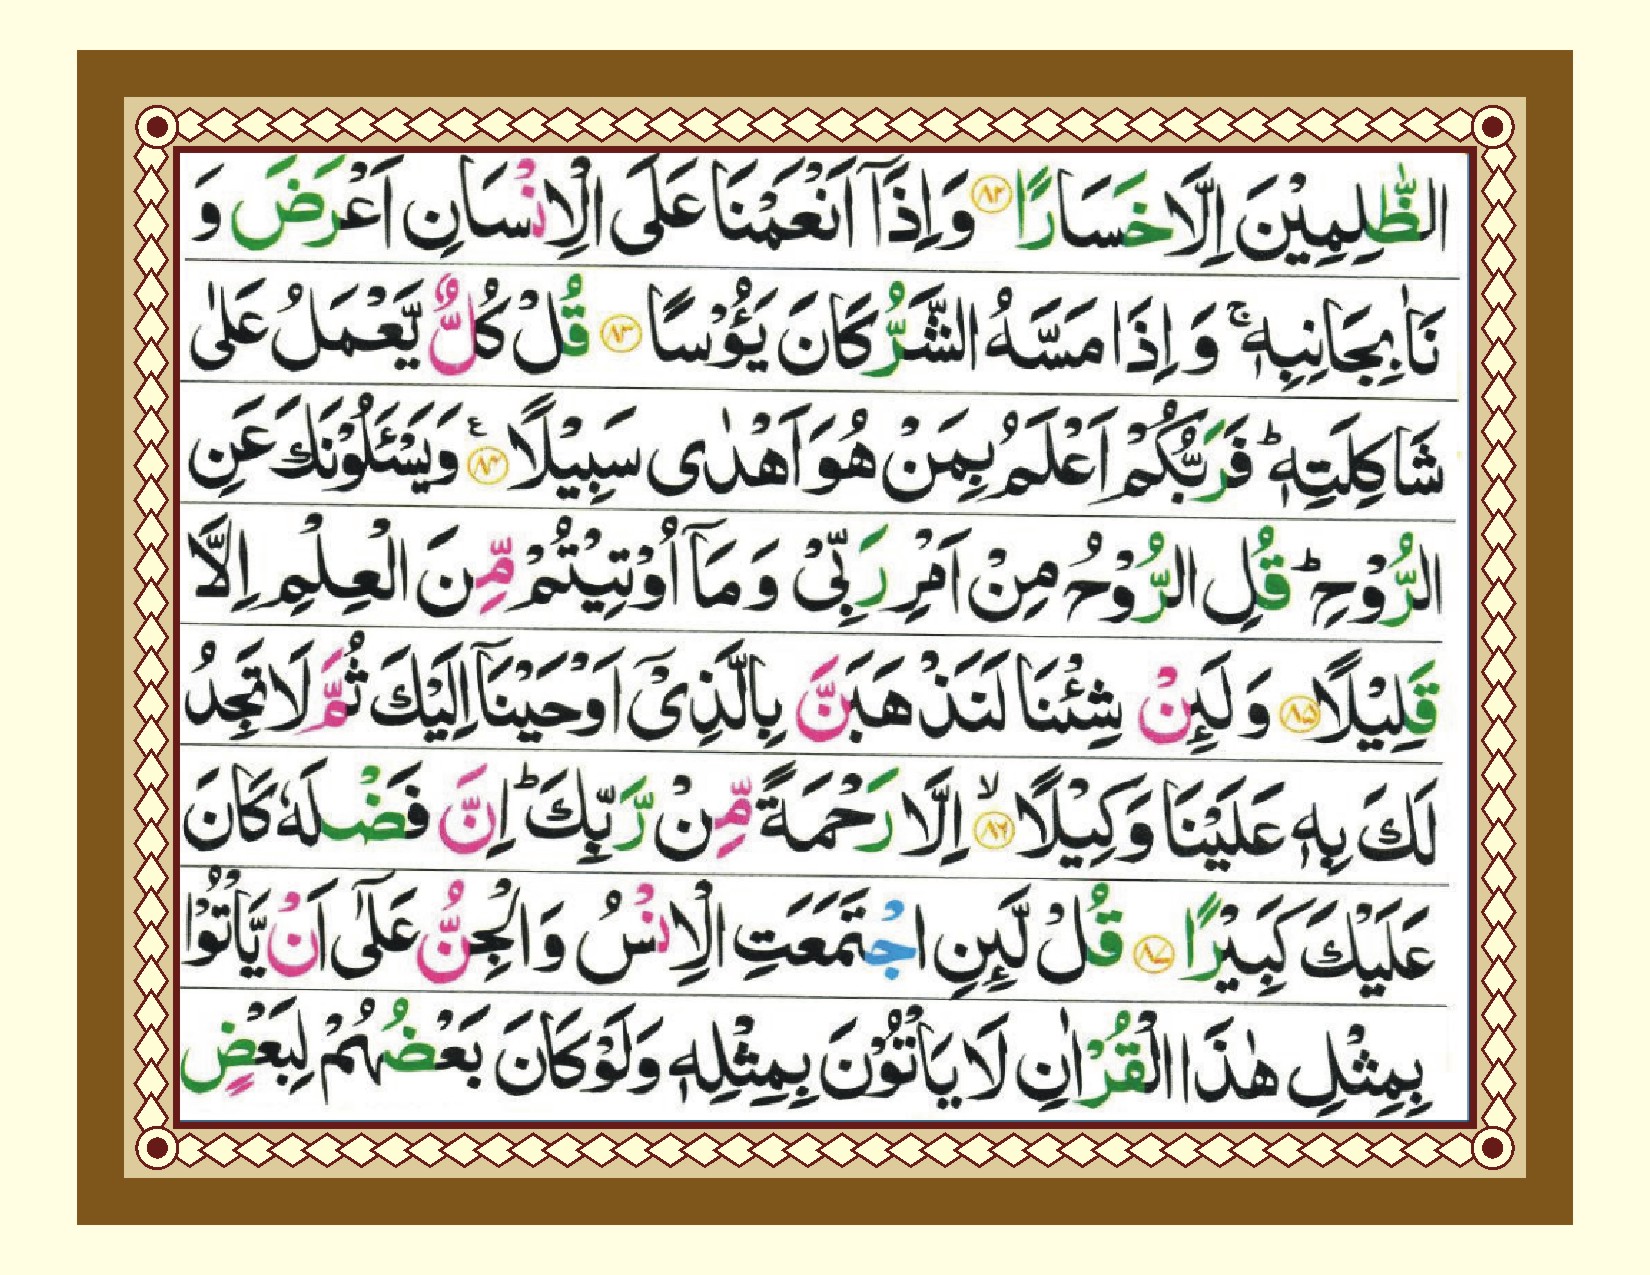 الظّٰلِمِيْنَ اِلَّا خَسَارًا ﴿۸۲﴾ وَاِذَاۤ اَنْعَمْنَا عَلَى الْاِنْسَانِ اَعْرَضَ وَ
نَاٰبِجَانِبِهٖ ۚ وَ اِذَا مَسَّهُ الشَّرُّ كَانَ يَـُٔوْسًا ﴿۸۳﴾ قُلْ كُلٌّ يَّعْمَلُ عَلٰى
شَاكِلَتِهٖ ؕ فَرَبُّكُمْ اَعْلَمُ بِمَنْ هُوَ اَهْدٰى سَبِيْلًا ﴿۸۴﴾ ع وَيَسْـَٔلُوْنَكَ عَنِ
الرُّوْحِ ؕ قُلِ الرُّوْحُ مِنْ اَمْرِ رَبِّىْ وَ مَاۤ اُوْتِيْتُمْ مِّنَ الْعِلْمِ اِلَّا
قَلِيْلًا ﴿۸۵﴾ وَ لَئِنْ شِئْنَا لَنَذْهَبَنَّ بِالَّذِىْۤ اَوْحَيْنَاۤ اِلَيْكَ ثُمَّ لَا تَجِدُ
لَكَ بِهٖ عَلَيْنَا وَكِيْلًا ﴿۸۶﴾ ۙ اِلَّا رَحْمَةً مِّنْ رَّبِّكَ ؕ اِنَّ فَضْلَهٗ كَانَ
عَلَيْكَ كَبِيْرًا ﴿۸۷﴾ قُلْ لَّئِنِ اجْتَمَعَتِ الْاِنْسُ وَ الْجِنُّ عَلٰٓى اَنْ يَّاْتُوْا
بِمِثْلِ هٰذَا الْقُرْاٰنِ لَا يَاْتُوْنَ بِمِثْلِهٖ وَلَوْ كَانَ بَعْضُهُمْ لِبَعْضٍ